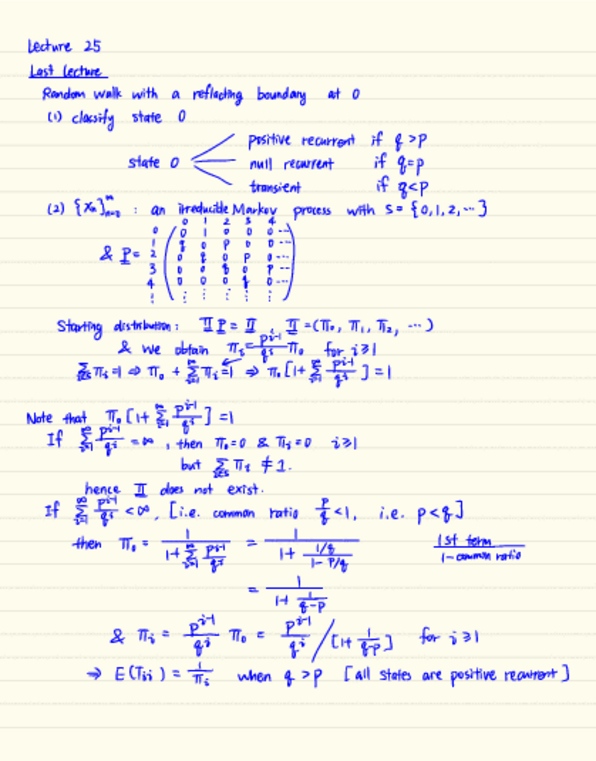 Lecture 25
Last lecture
Random walk with a reflecting boundary at 0
(1) classify state 0
positive recurrent if q > p
state 0 null recurrent if q = p
transient if q < p
(2) {Xₙ}ₙ₌₀^∞ : an irreducible Markov process with S = {0, 1, 2, ⋯}
0 1 2 3 4
0 0 1 0 0 0 ⋯
1 q 0 p 0 0 ⋯
& P = 2 0 q 0 p 0 ⋯
3 0 0 q 0 p ⋯
4 0 0 0 q 0
⋮ ⋮ ⋮ ⋮ ⋮ ⋮
Starting distribution: Π P = Π , Π = (π₀, π₁, π₂, ⋯)
& we obtain πᵢ = pⁱ⁻¹/qⁱ π₀ for i ≥ 1
Σ_{i∈S} πᵢ = 1 ⇒ π₀ + Σ_{i=1}^∞ πᵢ = 1 ⇒ π₀ [1 + Σ_{i=1}^∞ pⁱ⁻¹/qⁱ] = 1
Note that π₀ [1 + Σ_{i=1}^∞ pⁱ⁻¹/qⁱ] = 1
If Σ_{i=1}^∞ pⁱ⁻¹/qⁱ = ∞, then π₀ = 0 & πᵢ = 0 i ≥ 1
but Σ_{i∈S} πᵢ ≠ 1.
hence Π does not exist.
If Σ_{i=1}^∞ pⁱ⁻¹/qⁱ < ∞, [i.e. common ratio p/q < 1, i.e. p < q]
then π₀ = 1/(1 + Σ_{i=1}^∞ pⁱ⁻¹/qⁱ) = 1/(1 + (1/q)/(1 - p/q)) 1st term/(1 - common ratio)
= 1/(1 + 1/(q-p))
& πᵢ = pⁱ⁻¹/qⁱ π₀ = pⁱ⁻¹/qⁱ / [1 + 1/(q-p)] for i ≥ 1
⇒ E(Tᵢᵢ) = 1/πᵢ when q > p [all states are positive recurrent]